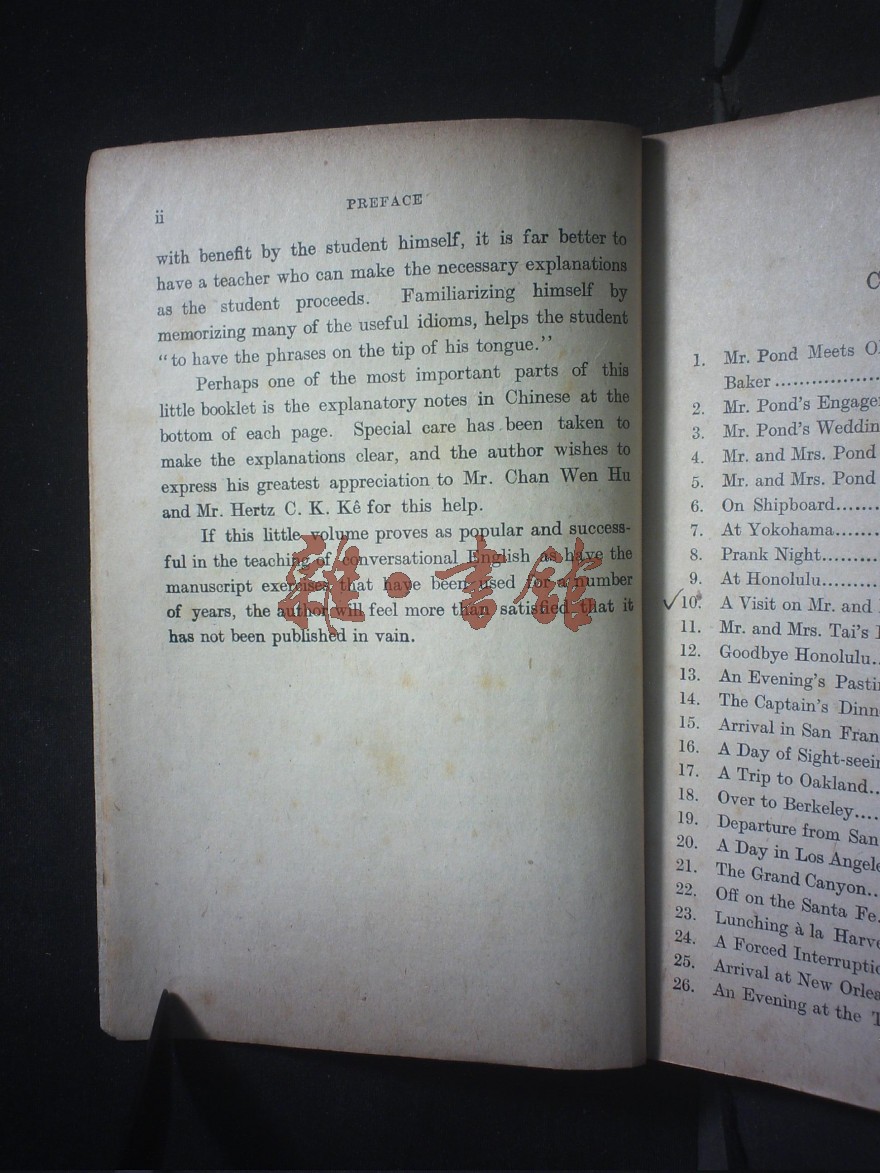 ii
PREFACE
with benefit by the student himself, it is far better to
have a teacher who can make the necessary explanations
as the student proceeds. Familiarizing himself by
memorizing many of the useful idioms, helps the student
“to have the phrases on the tip of his tongue.”
Perhaps one of the most important parts of this
little booklet is the explanatory notes in Chinese at the
bottom of each page. Special care has been taken to
make the explanations clear, and the author wishes to
express his greatest appreciation to Mr. Chan Wen Hu
and Mr. Hertz C. K. Kê for this help.
If this little volume proves as popular and success-
ful in the teaching of conversational English as have the
manuscript exercises that have been used for a number
of years, the author will feel more than satisfied that it
has not been published in vain.
雜·書館
C
1. Mr. Pond Meets
Baker..................
2. Mr. Pond's
3. Mr. Pond's
4. Mr. and Mrs. Pond
5. Mr. and Mrs. Pond
6. On Shipboard.......
7. At Yokohama.......
8. Prank Night.........
9. At Honolulu.........
10. A Visit on Mr. and
11. Mr. and Mrs. Tai's
12. Goodbye Honolulu..
13. An Evening's
14. The Captain's
15. Arrival in San
16. A Day of
17. A Trip to Oakland..
18. Over to Berkeley....
19. Departure from San
20. A Day in Los
21. The Grand Canyon..
22. Off on the Santa Fe.
23. Lunching à la
24. A Forced
25. Arrival at New
26. An Evening at the